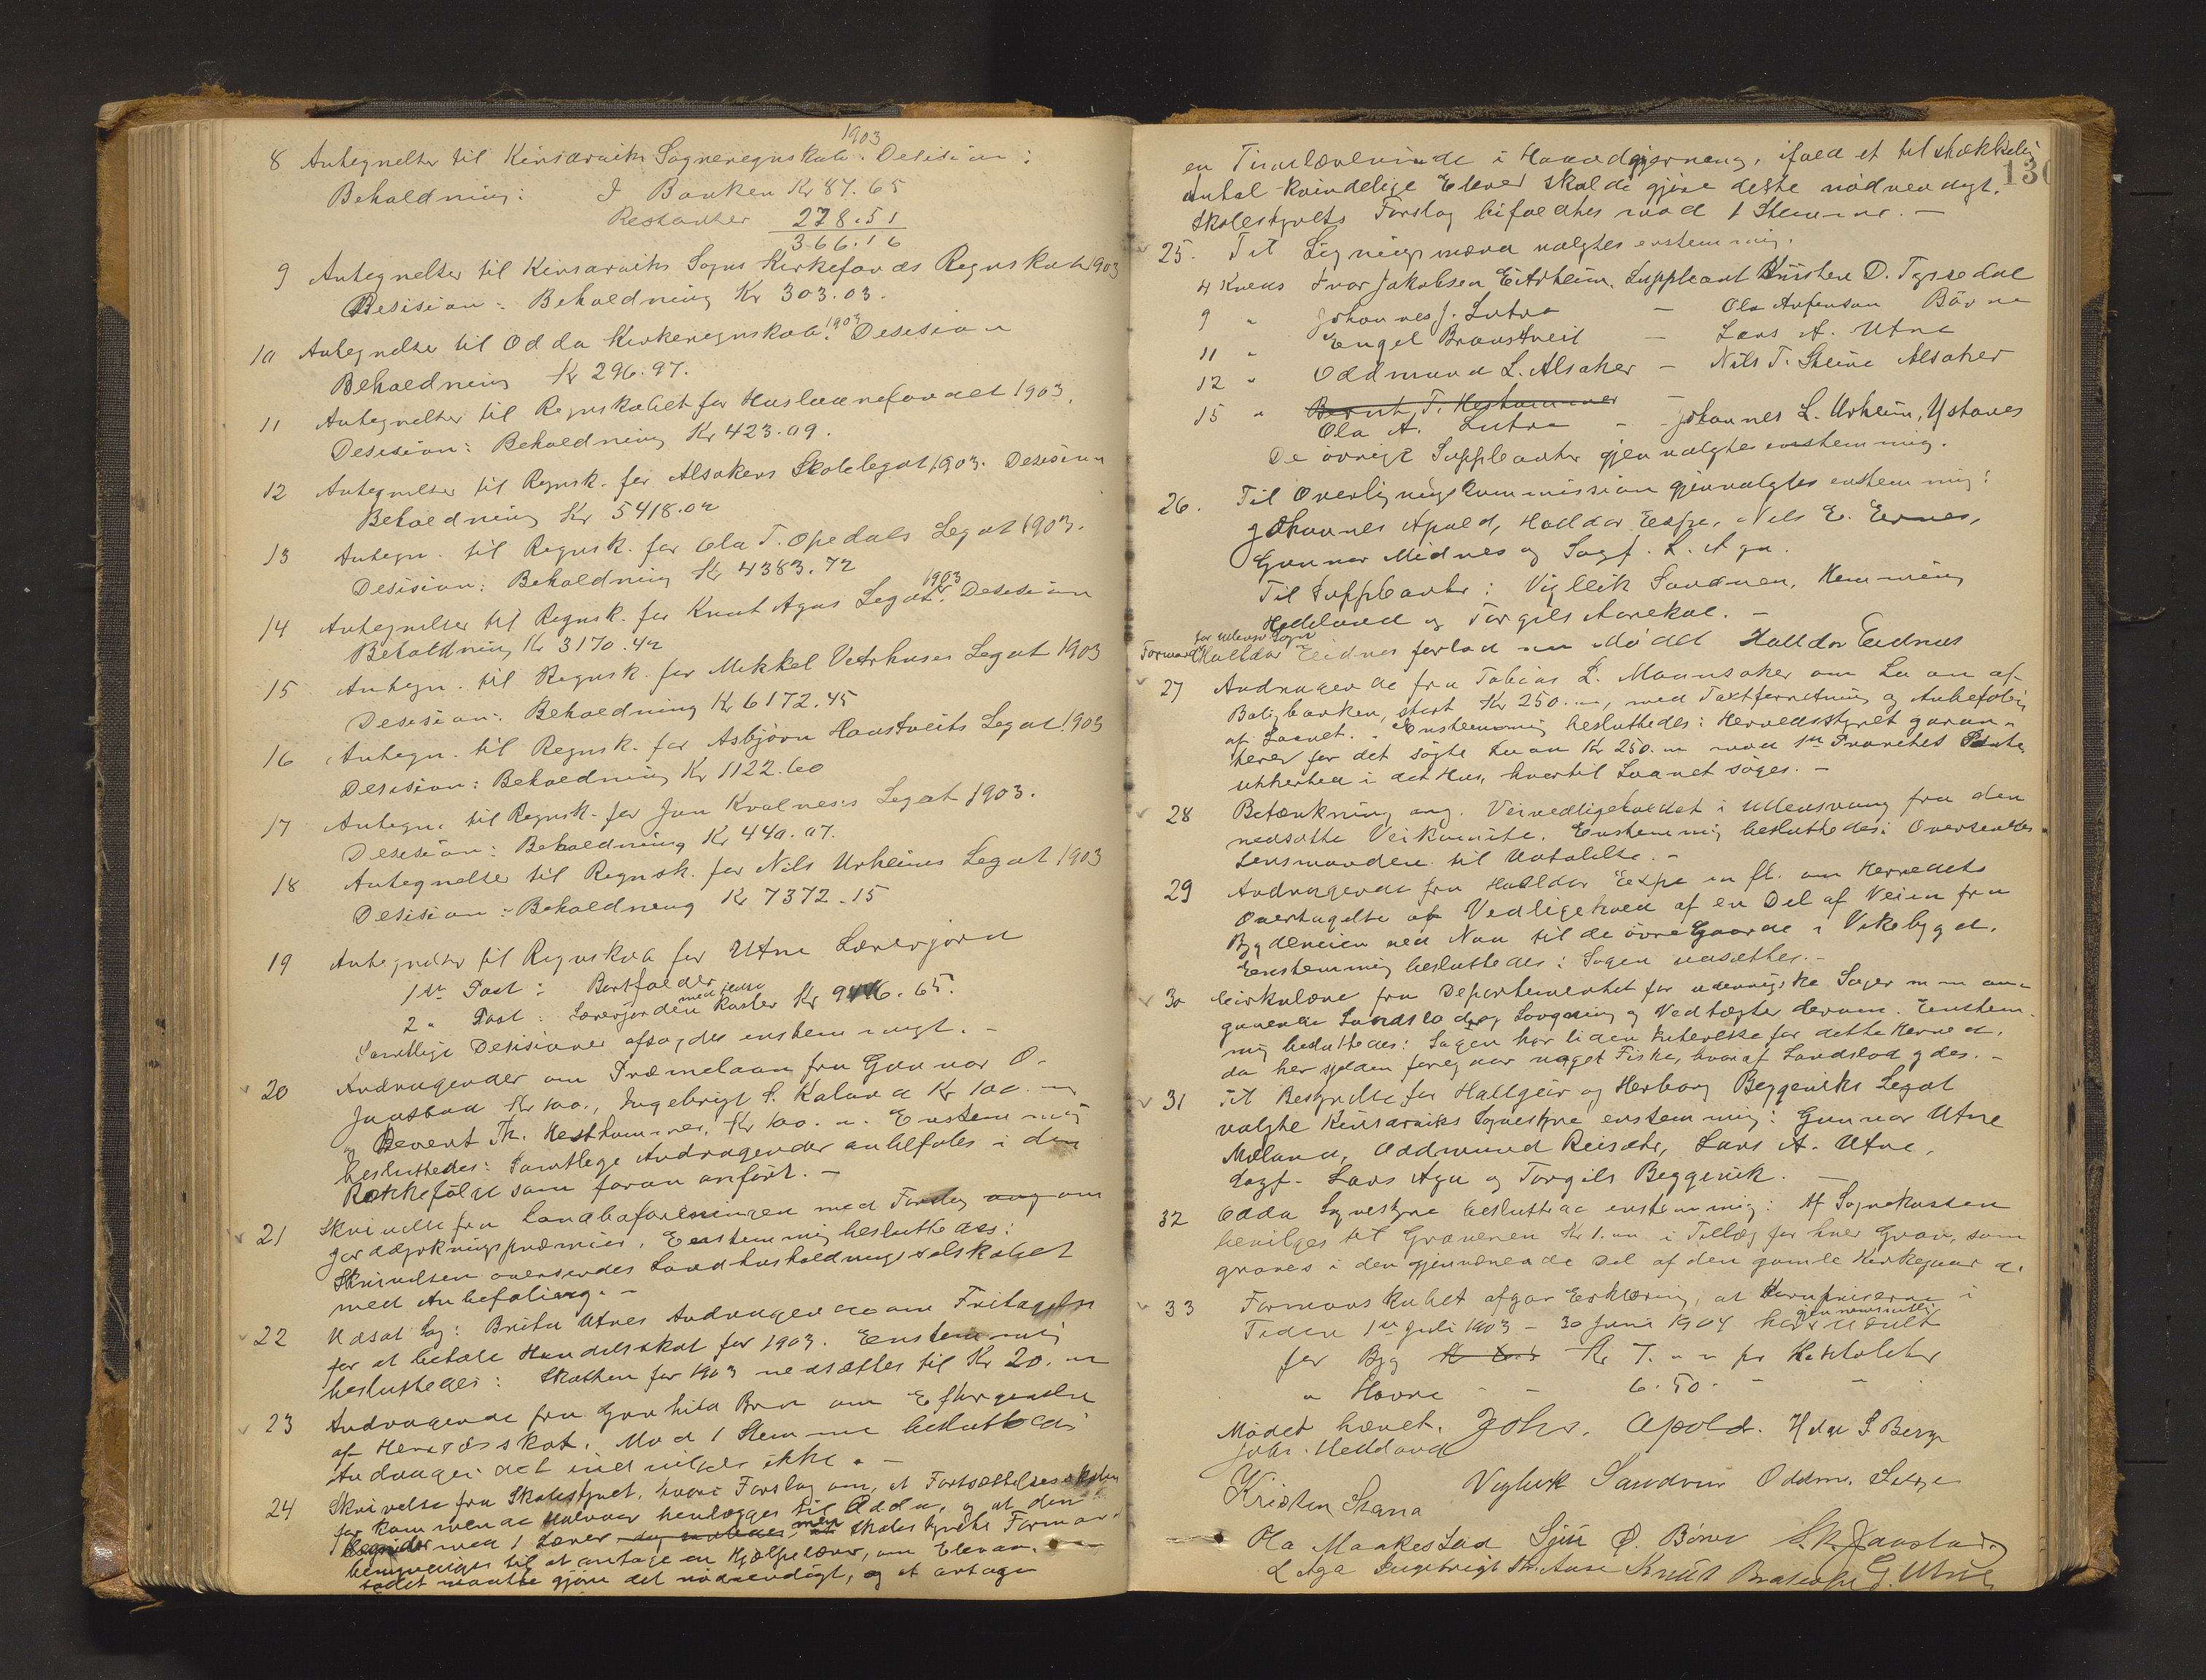 1903
8 Antegnelser til Kinsarviks Sogneregnskab. Desision:
Behaldning: I Banken Kr 87.65
Restantser 278.51
366.16
9 Antegnelser til Kinsarviks Sogns Kirkefonds Regnskab 1903
Desision: Behaldning Kr 303.03.
10 Antegnelser til Odda Kirkeregnskab. 1903 Desision
Behaldning Kr 296.97.
11 Antegnelser til Regnskabet for Huslaanefondet 1903.
Desision: Behaldning Kr 423.09.
12 Antegnelser til Regnsk. for Alsakers Skolelegat 1903. Desision
Behaldning Kr 5418.02
13 Antegn. til Regnsk. for Ola T. Opedals Legat 1903.
Desision: Behaldning Kr 4383.72
14 Antegnelser til Regnsk. for Knut Agas Legat. 1903 Desision
Behaldning Kr 3170.42
15 Antegn. til Regnsk. for Mikkel Vetrhuses Legat 1903
Desision: Behaldning Kr 6172.45
16 Antegn. til Regnsk. for Asbjørn Haustveits Legat 1903
Desision: Behaldning Kr 1122.60
17 Antegn. til Regnsk. for Jon Kvalneses Legat 1903.
Desision: Behaldning Kr 440.07.
18 Antegnelser til Regnsk. for Nils Urheims Legat 1903
Desision: Behaldning Kr 7372.15
19 Antegnelser til Regnskab for Utne Lærerjord
1ste Post: Bortfalder
2 " Post: Lærerjorden med Huse koster Kr 9446.65.
Samtlige Desisioner afsagdes enstemmigt. –
20 Andragender om Præmelaan fra Gunnar O.
Jaastad Kr 100., Ingebrigt S. Kaland Kr 100. –
og Bevent Th. Hesthammer, Kr 100. –. Enstemmig
besluttedes: Samtlige Andragender anbefales i den
Rækkefølge som foran anført. –
21 Skrivelse fra Landboforeningen med Forslag ang om
jorddyrkningspræmier. Enstemmig besluttedes:
Skrivelsen oversendes Landhusholdningsselskabet
med Anbefaling. –
22 Udsat Sag: Brita Utnes Andragende om Fritagelse
for at betale Handelsskat for 1903. Enstemmig
besluttedes: Skatten for 1903 nedsættes til Kr 20. –
23 Andragende fra Gunhild Bra om Eftergivelse
af Herredsskat. Mod 1 Stemme besluttedes
Andragendet indvilges ikke. –
24 Skrivelse fra Skolestyret, hvori Forslag om, at Fortsættelsesskolen
for kommende Halvaar henlægges til Odda, og at den
begynder med 1 Lærer men at Skolestyrets Formand
bemyndiges til at antage en Hjælpelærer, om Elevan-
tallet maatte gjøre det nødvendigt, og at antage
130
en Timelærerinde i Haandgjerning, ifald et tilstrækkelig
Antal kvindelige Elever skulde gjøre dette nødvendigt.
Skolestyrets Forslag bifaldtes mod 1 Stemme. –
25. Til Ligningsmænd valgtes enstemmig.
4 Kreds Ivar Jakobsen Eitrheim. Suppleant Kristen D. Tyssedal
9 " Johannes J. Lutro – Ola Arfinson Børve
11 " Engel Braastveit – Lars A. Utne
12 " Oddmund L. Alsaker – Nils T. Steine Alsaker
15 " Bernt T. Hesthammer –
Ola A. Lutro – Johannes L. Urheim, Ystanes
De øvrige Suppleanter gjenvalgtes enstemmig.
26. Til Overligningskommission gjenvalgtes enstemmig:
Johannes Apold, Halldor Espe, Nils E. Eidnes,
Gunnar Midnes og Sagf. L. Aga.
Til Suppleanter: Viglleik Sandven, Hemming
Heddland og Torgils Aarekol. –
for Ullensv. Sogn
Formand Halldor Eidnes forlod nu Mødet Halldor Eidnes
27 Andragende fra Tobias L. Maansaker om Laan af
Boligbanken, stort Kr 250. –, med Taxtforretning og Anbefaling
af Laanet. – Enstemmig besluttedes: Herredsstyret garan-
terer for det søgte Laan Kr 250. – mod 1ste Prioritets Pante-
sikkerhed i det Hus, hvortil Laanet søges. –
28 Betænkning ang. Veivedligeholdet i Ullensvang fra den
nedsatte Veikomite. Enstemmig besluttedes: Oversendes
Lensmanden til Udtalelse. –
29 Andragende fra Halldor Espe m fl. om Herredets
Overtagelse af Vedligehold af en Del af Veien fra
Bygdeveien ved Naa til de øvre Gaarde i Vikebygd.
Enstemmig besluttedes: Sagen udsættes. –
30 Cirkulære fra Departementet for udenrigske Sager m m an-
gaaende Landslodslovgivning og Vedtægter derom. Enstem-
mig besluttedes: Sagen har liden Interesse for dette Herred,
da her sjelden foregaar noget Fiske, hvoraf Landslod ydes. –
31 Til Bestyrelse for Hallgeir og Herborg Beggeviks Legat
valgte Kinsarviks Sognestyre enstemmig: Gunnar Utne
Mæland, Oddmund Reisæte, Lars A. Utne,
Sagf. Lars Aga og Torgils Beggevik. –
32 Odda Sognestyre besluttede enstemmig: Af Sognekassen
bevilges til Graveren Kr 1. – i Tillæg for hver Grav, som
graves i den gjenværende Del af den gamle Kirkegaard.
33 Formandskabet afgav Erklæring, at Kornpriserne i
Tiden 1ste Juli 1903 – 30 Juni 1904 har gjennemsnitlig været
for Byg Kr 7. – pr Hektoliter
" Havre – – 6.50. – –
Mødet hævet. Johs. Apold. Helge S Berge
Johs. Heddland
Viglleik Sandven Oddm. Sexe
Kristen Skara
Ola Maakestad Sjur Ø. Børve S. K. Jaastad.
L Aga Ingebrigt Th. Aase Knut Bratespe G. Utne